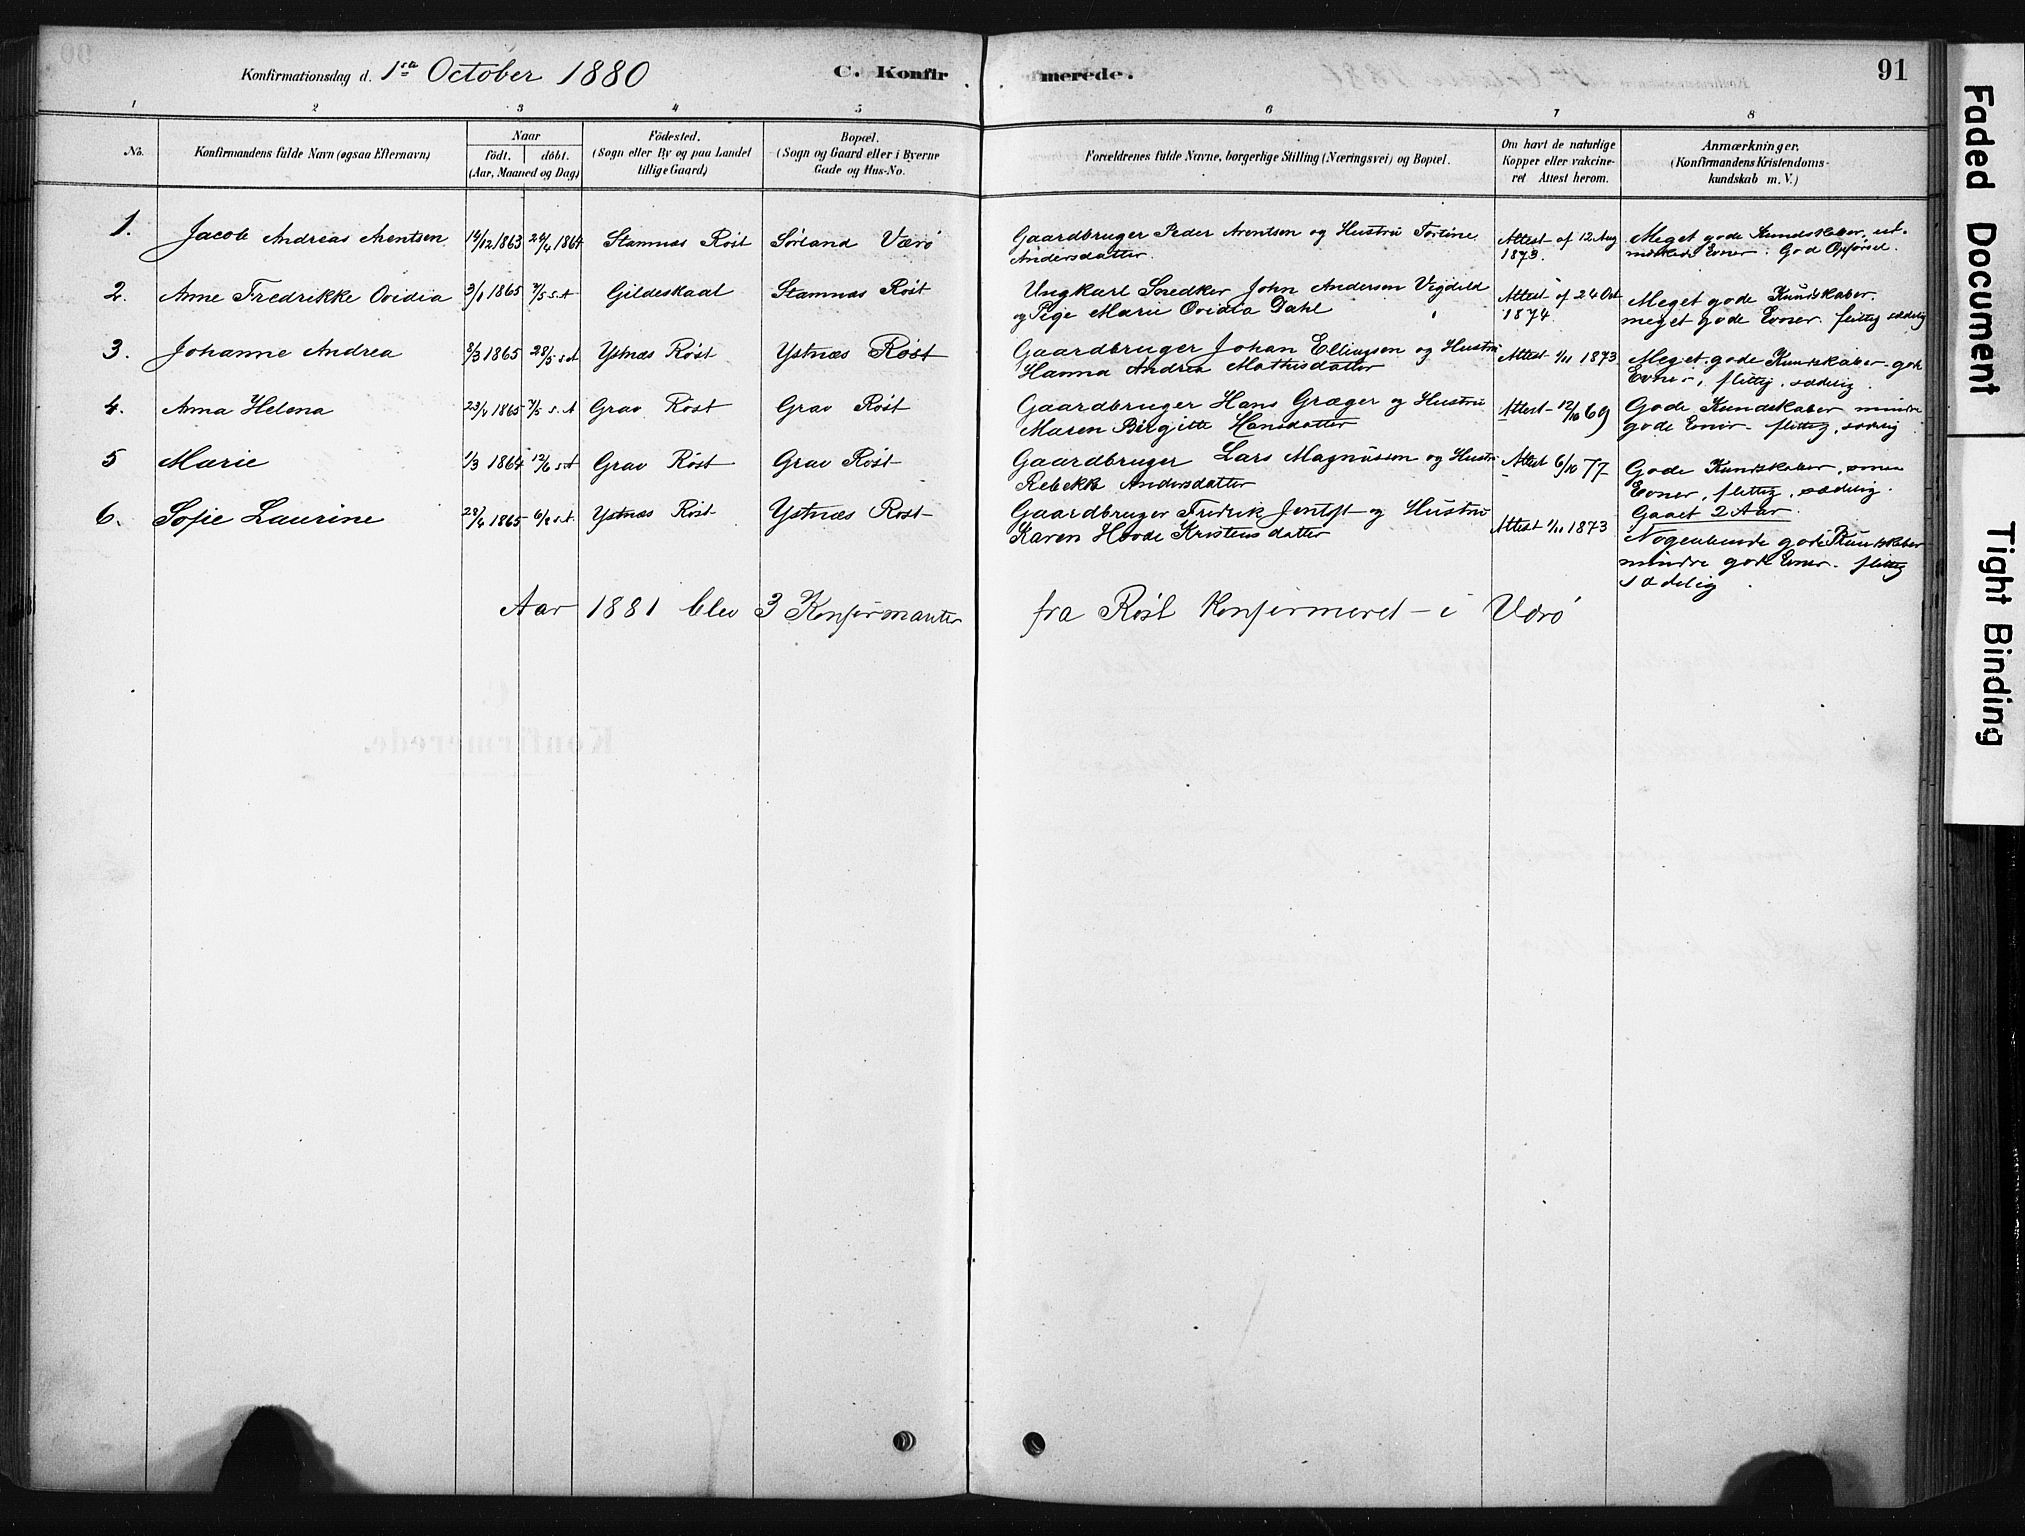 Konfirmationsdag d. 1ste October 1880 C. Konfirmerede. 91
1 2 3 4 5 6 7 8
No. Konfirmandens fulde Navn (ogsaa Efternavn) Naar födt. döbt. (Aar, Maaned og Dag) Födested. (Sogn eller By og paa Landet tillige Gaard) Bopæl. (Sogn og Gaard eller i Byerne Gade og Hus-No. Forældrenes fulde Navne, borgerlige Stilling (Næringsvei) og Bopæl. Om havt de naturlige Kopper eller vakcineret Attest herom. Anmærkninger. (Konfirmandens Kristendomskundskab m. V.)
1. Jacob Andreas Arentsen 14/12 1863 24/4 1864 Stamnæs Röst Sörland Værö Gaardbruger Peder Arentsen og Hustru Tortine Andersdatter. Attest af 12 Aug 1873. Meget gode Kundskaber, udmærkede Evner. God Opförsel.
2. Anne Fredrikke Ovidia 3/1 1865 7/5 s.A Gildeskaal Stamnæs Röst Ungkarl Snedker John Andersen og Pige Marie Ovidia Dahl Attest af 24 Oct 1874. Meget gode Kundskaber. meget gode Evner. flittig sædelig
3. Johanne Andrea 8/3 1865 28/5 s.A Ystnæs Röst Ystnæs Röst Gaardbruger Johan Ellingsen og Hustru Hanna Andrea Mathisdatter Attest 1/11 1873 Meget gode Kundskaber gode Evner, flittig, sædelig.
4. Anna Helena 23/4 1865 7/5 s.A Grav Röst Grav Röst Gaardbruger Hans Græger og Hustru Maren Birgitte Hansdatter Attest 12/10 69 Gode Kundskaber mindre gode Evner. flittig, sædelig
5 Marie 1/3 1864 12/6 s.A Grav Röst Grav Röst Gaardbruger Lars Magnussen og Hustru Rebekka Andersdatter Attest 6/10 77 Gode Kundskaber, smaa Evner, flittig, sædelig. Gaaet 2 Aar.
6. Sofie Laurine 28/4 1865 s.A. Ystnæs Röst Ystnæs Röst Gaardbruger Fredrik Jentoft og Hustru Karen Hovde Kristensdatter Attest 1/11 1873 Nogenlunde gode Kundskaber mindre gode Evner. flittig sædelig.
Aar 1881 blev 3 Konfirmanter fra Röst Konfirmeret i Værö
Konfirmerede.
Faded Document
Tight Binding